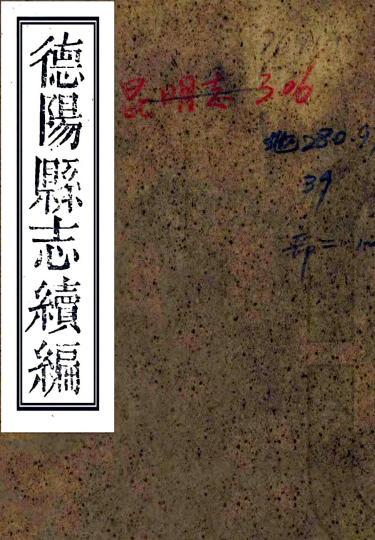 德陽縣志續編
昆明志 306
地280.9
39